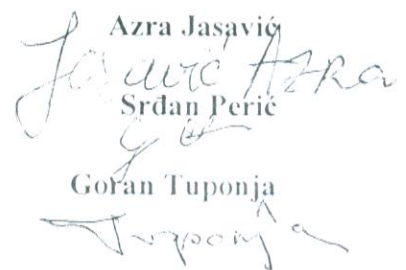 Azra Jasavić
Jasavić Azra
Srđan Perić
Goran Tuponja
Tuponja